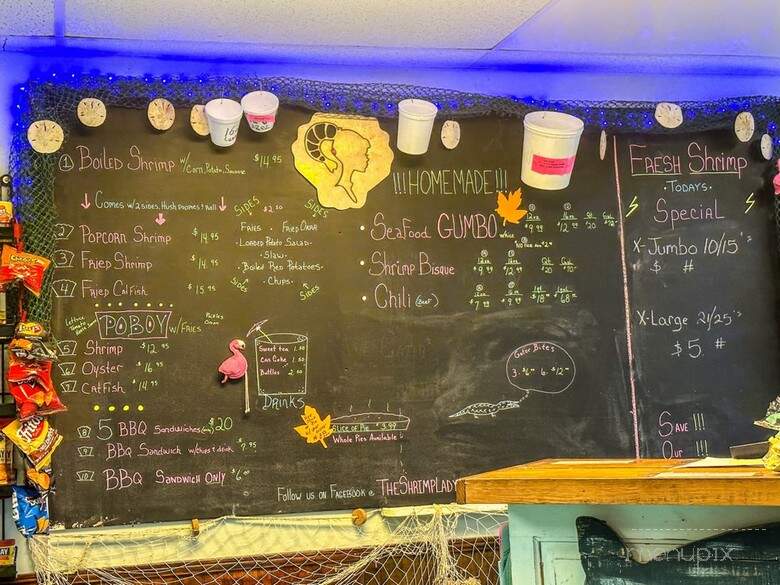 1 Boiled Shrimp w/Corn, Potato, Sausage $14.95
Comes w/2 sides, Hush puppies & roll
2 Popcorn Shrimp $14.95
3 Fried Shrimp $14.95
4 Fried Catfish $15.95
SIDES $2.50 SIDES
Fries Fried Okra
Loaded Potato Salad
Slaw
Boiled Red Potatoes
Chips
SIDES
SIDES
Lettuce
Tomato
POBOY w/FRIES
Pickles
Onion
5 Shrimp $12.95
6 Oyster $16.95
7 Catfish $14.95
8 5 BBQ Sandwiches $20
9 BBQ Sandwich w/chips & drink $7.95
10 BBQ Sandwich Only $6.00
Sweet tea 1.50
Can Coke 1.50
Bottles 2.00
DRINKS
!!!HOMEMADE!!!
• Seafood GUMBO
• Shrimp Bisque
• Chili (Beef)
Gator Bites
3-$6 6-$12
Slice of Pie $3.99
Whole Pies Available
Follow us on Facebook @ TheShrimpLady
Fresh Shrimp
• Todays •
Special
X-Jumbo 10/15's
$ #
X-Large 21/25's
$5. #
Save !!!
Our !!!
menupix